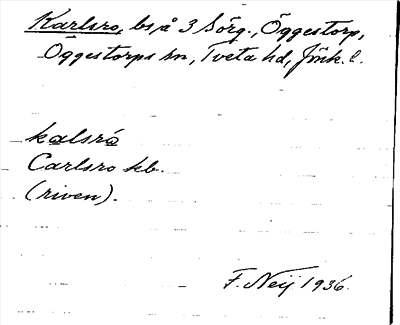 Karlsro, bs å 3 Sörg., Öggestorp,
Öggestorps sn, Tveta hd, Jönk. l.
kalsró
Carlsro kb.
(riven).
F. Neij 1936.